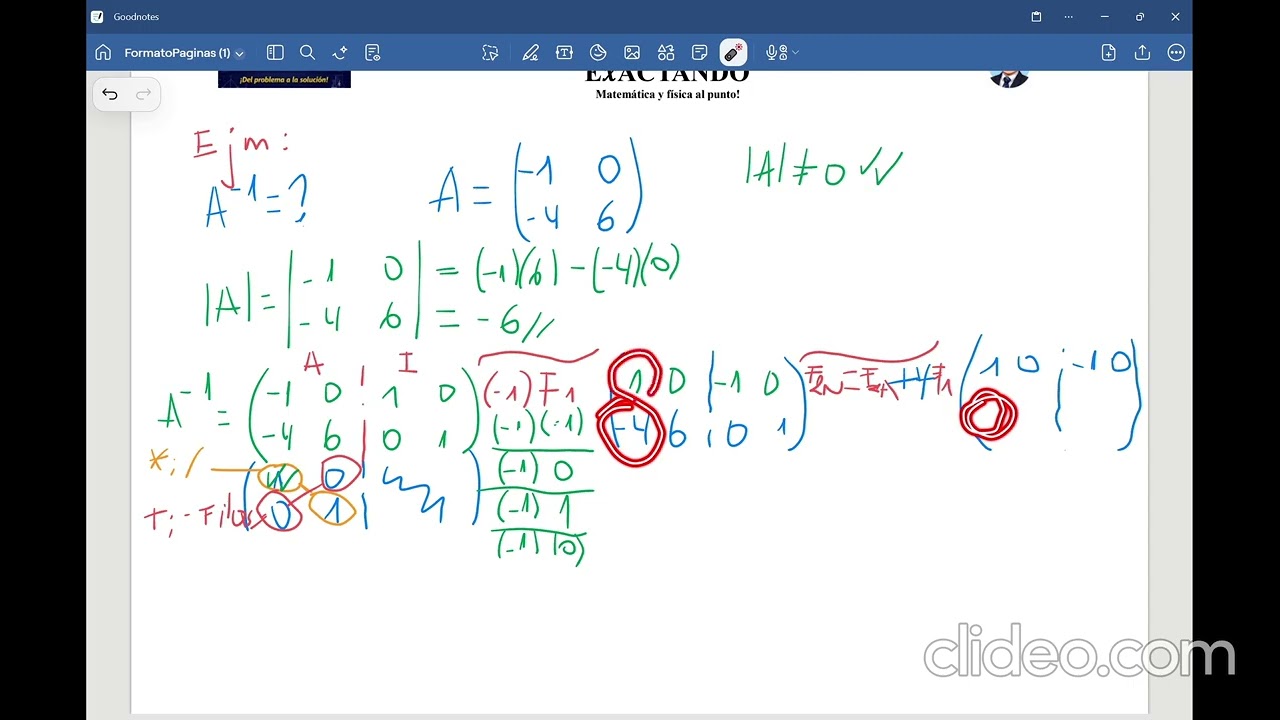 Goodnotes
FormatoPaginas (1)
¡Del problema a la solución!
ExACTANDO
Matemática y física al punto!
Ejm:
A⁻¹ = ?
A = (-1 0
-4 6)
|A| ≠ 0 ✓✓
|A| = |-1 0
-4 6| = (-1)(6) - (-4)(0)
= -6 //
A I
A⁻¹ = (-1 0 | 1 0
-4 6 | 0 1)
(-1) F1
(-1)(-1)
(-1) 0
(-1) 1
(-1) (0)
1 0 | -1 0
-4 6 | 0 1)
+4F1
(1 0 | -1 0
0
*; /
0
+; - Filas
0 1
clideo.com